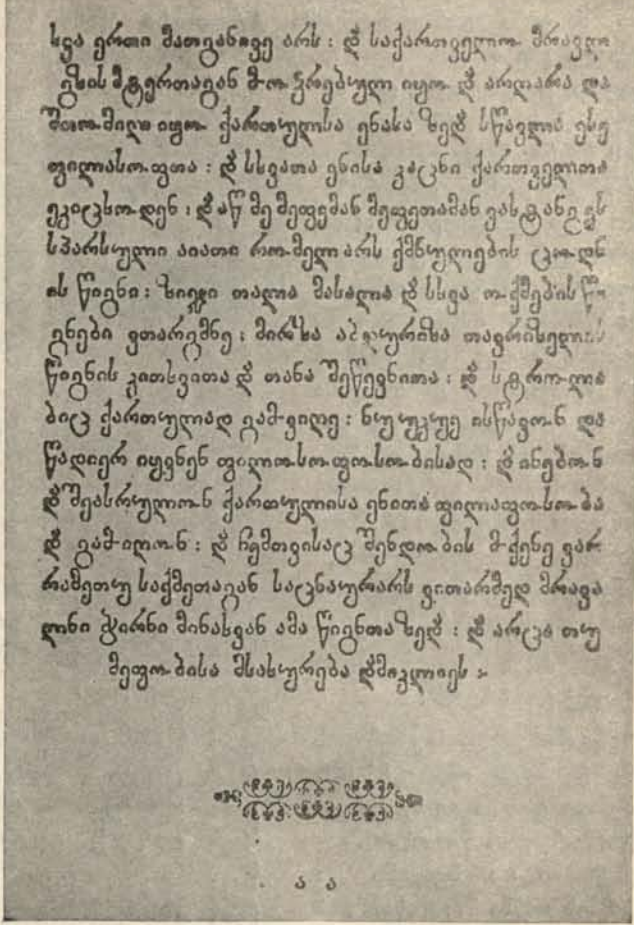 სხვა ერთი მათგანივე არს : და საქართველო მრავლი
გზის მტერთაგან მოჴრებული იყო და არღარა და
შთომილ იყო ქართულისა ენასა ზედ სწავლა ესე
ფილასოფთა : და სხვათა ენისა კაცნი ქართველთა
ეკიცხოდენ : და აწ მე მეფემან მეფეთამან ვახტანგ ეს
სპარსული აიათი რომელ არს ქმნულების ცოდნ
ის წიგნი : ზიჯი თალა მასალა და სხვა ოქმების წი
გნები ვთარგმნე : მირზა თავრიზელის
წიგნის კითხვითა და თანა შეწევნითა : და სტროლა
ბიც ქართულად გამოვიღე : ნუუკუე ისწავონ და
წადიერ იყვნენ ფილოსოფოსობისად : და ინებონ
და შეასრულონ ქართულისა ენითა ფილაფოსობა
და გამოიღონ : და ჩემთვისაც შენდობის მოქენე ვარ
რამეთუ საქმეთაგან საცნაურარს ვითარმედ მრავა
ლნი ჭირნი მინახვან ამა წიგნთა ზედ : და არცა თუ
მეფობისა მსახურება დმიკლიეს :
ა ა